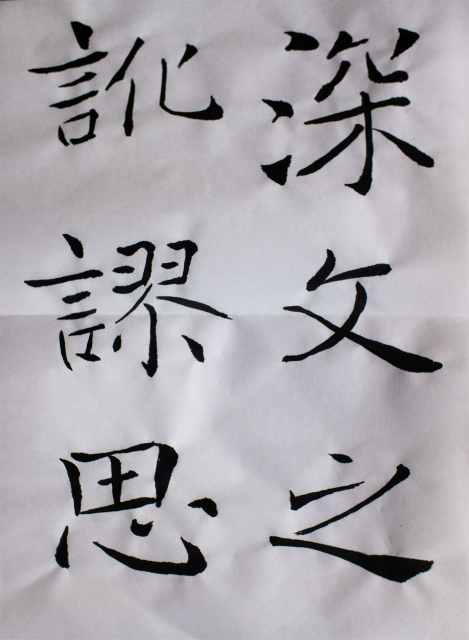 深文之
訛謬思